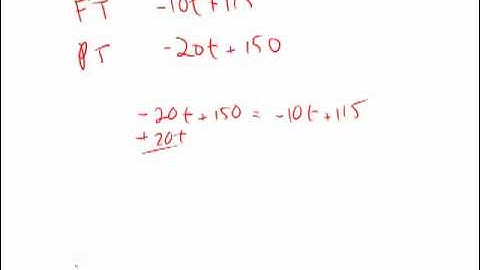 FT -10t+115
PT -20t+150
-20t+150 = -10t+115
+20t